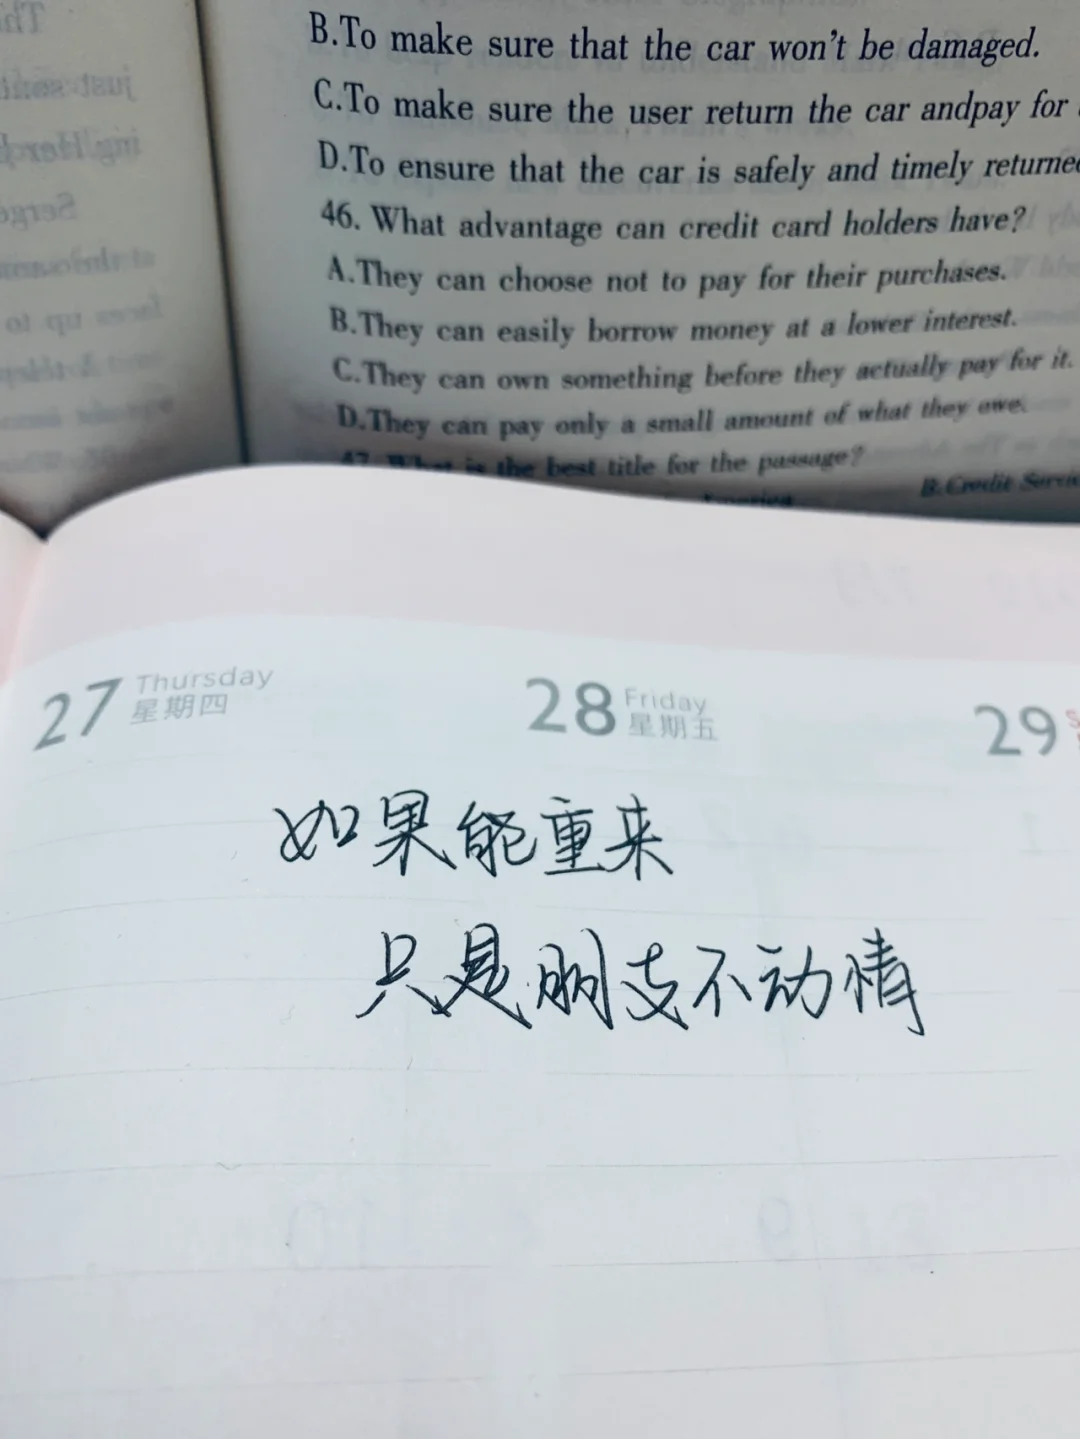 B.To make sure that the car won't be damaged.
C.To make sure the user return the car andpay for
D.To ensure that the car is safely and timely returned
46. What advantage can credit card holders have?
A.They can choose not to pay for their purchases.
B.They can easily borrow money at a lower interest.
C.They can own something before they actually pay for it.
D.They can pay only a small amount of what they owe.
47. What is the best title for the passage?
B.Credit
27 Thursday
星期四
28 Friday
星期五
29
如果能重来
只是朋友不动情